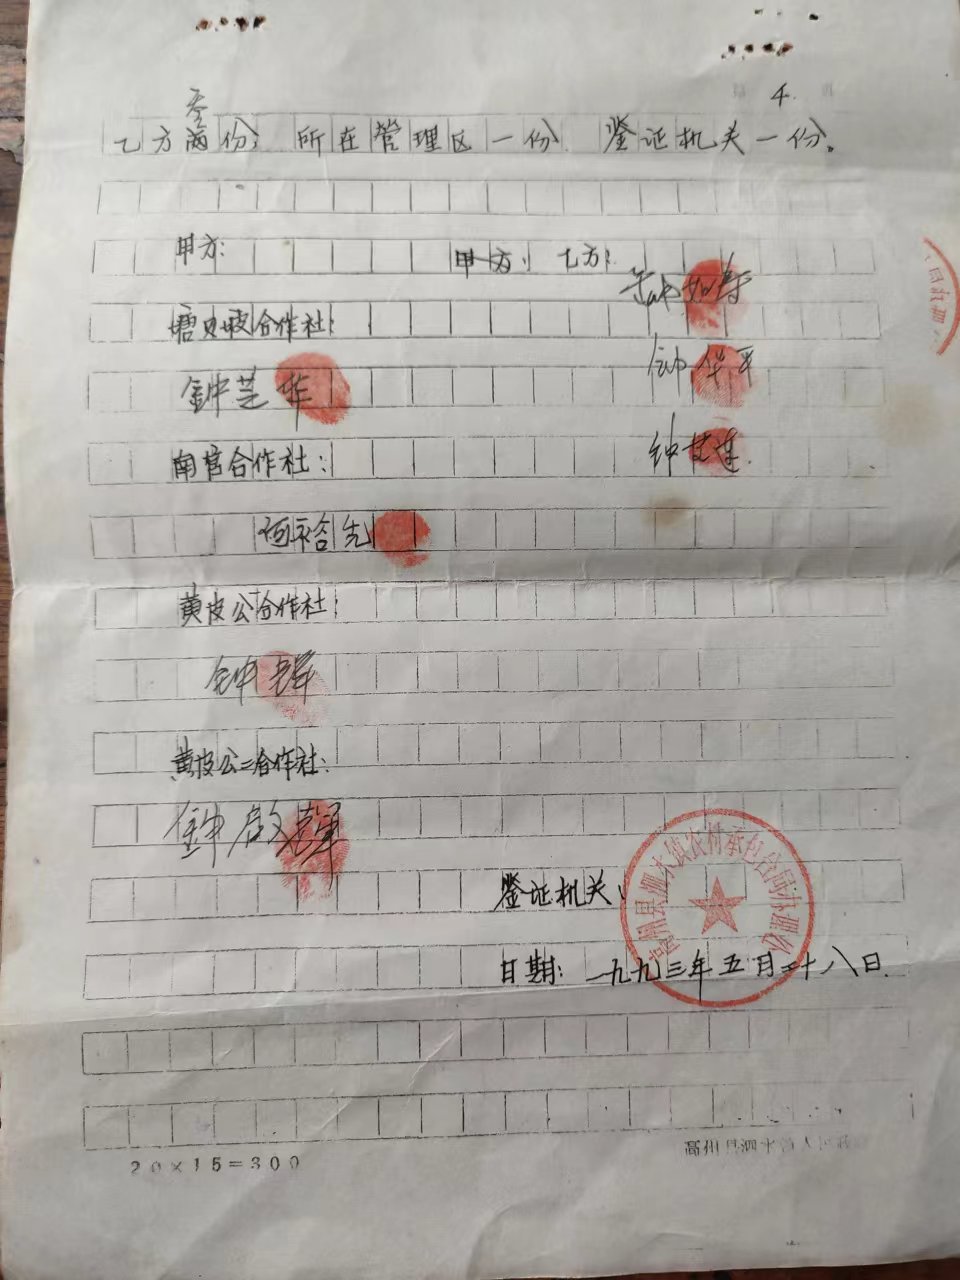 4.
叁
乙方两份；所在管理区一份．鉴证机关一份。
甲方：
甲方： 乙方：
钟如寿
塘 坡合作社：
钟华平
钟芝华
钟 连
南官合作社：
先
黄皮公合作社：
钟
黄皮公二合作社：
钟启文
鉴证机关：
高州县泗水镇农村承包合同办理处
日期：一九九三年五月二十八日．
高州县泗水
20×15=300